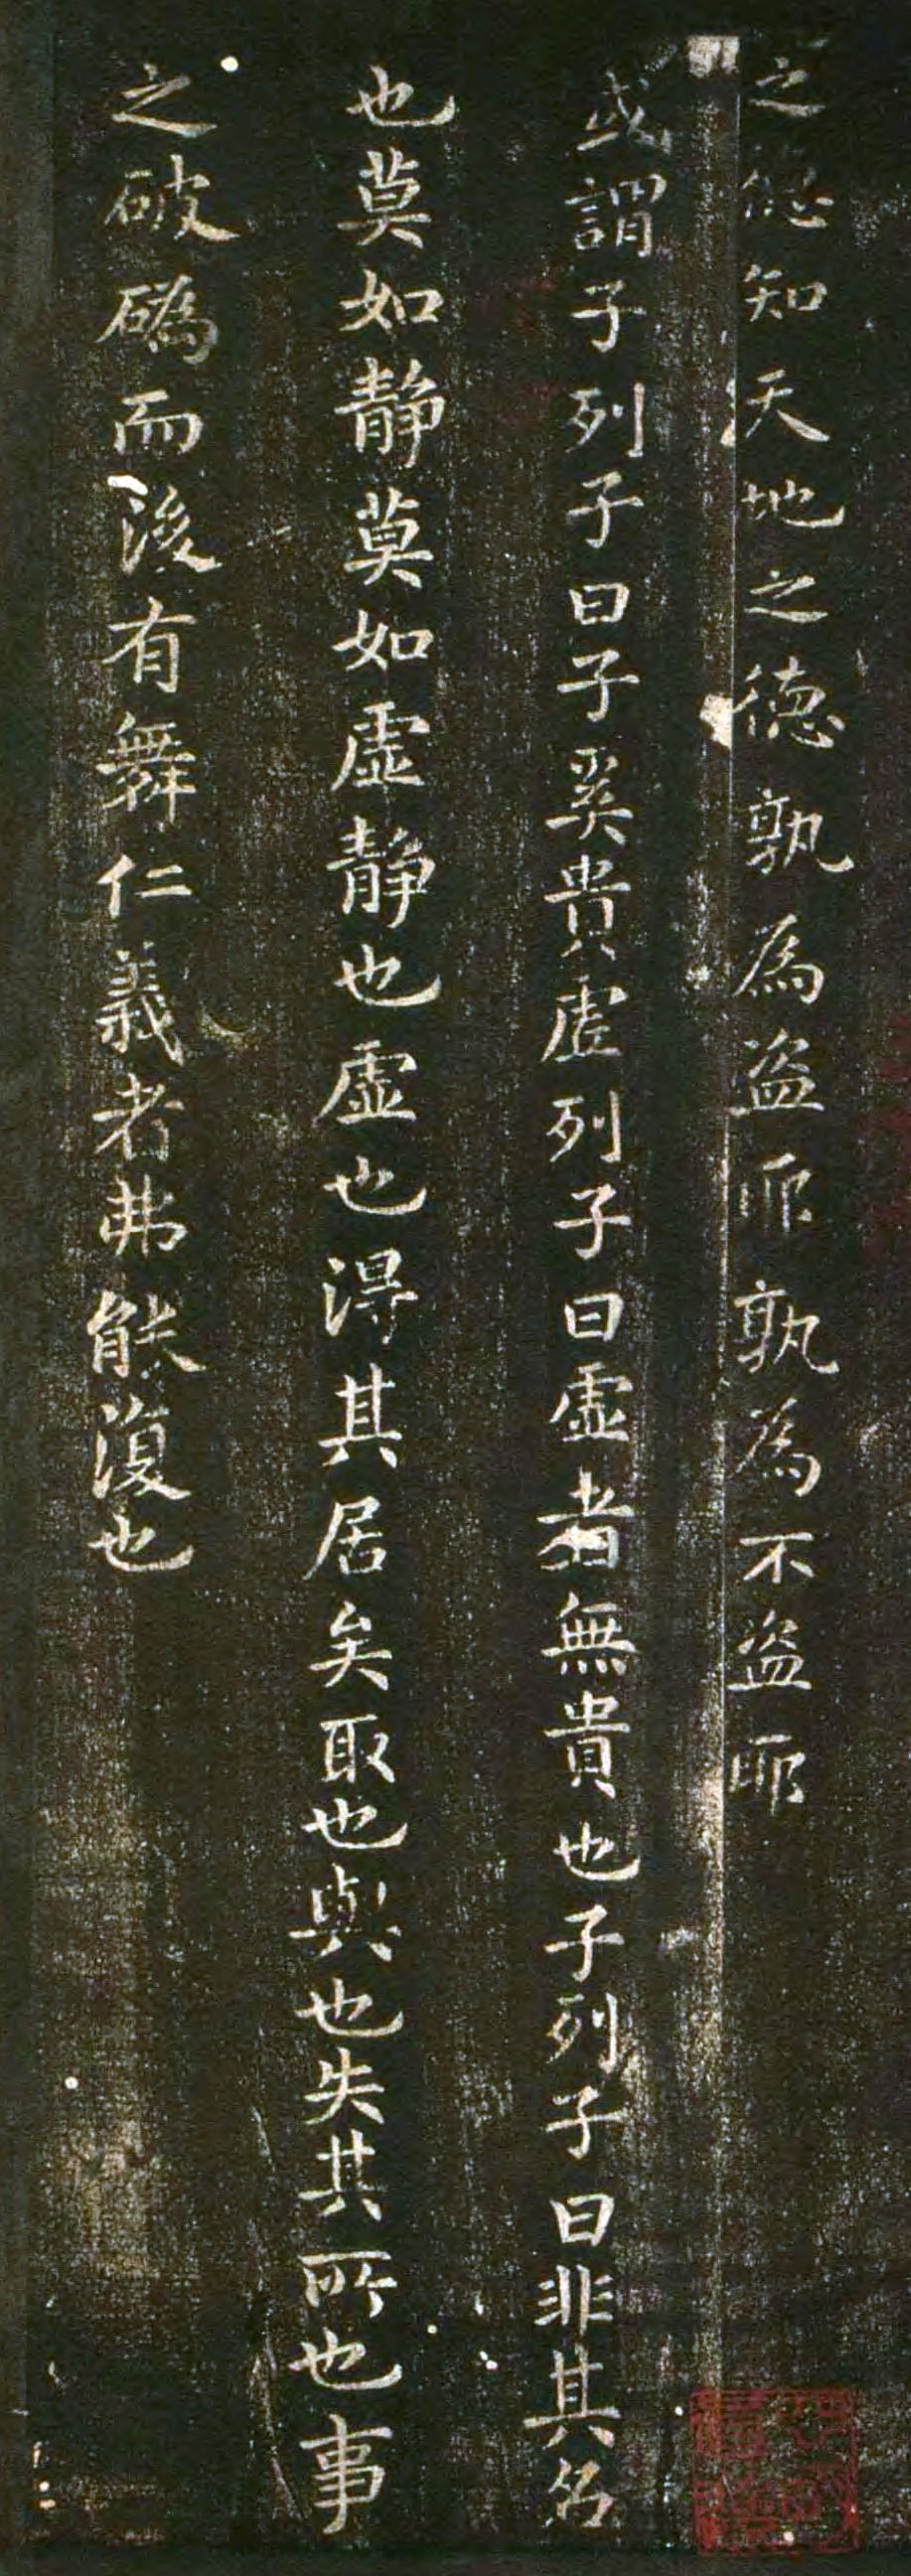 之德知天地之德孰為盜耶孰為不盜耶
或謂子列子曰子奚貴虛列子曰虛者無貴也子列子曰非其名
也莫如靜莫如虛靜也虛也得其居矣取也與也失其所也事
之破䃣而後有舞仁義者弗能復也